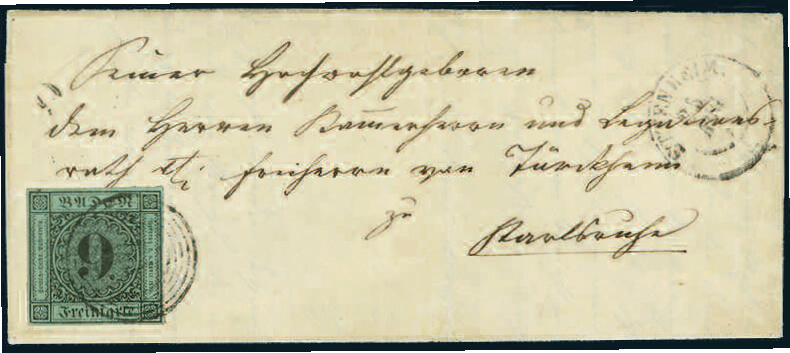 Seiner Hochwohlgeboren
dem Herren Kammerherrn und Legations-
rath &c. Freiherrn von Türckheim
zu
Karlsruhe
BADEN
9
Freimarke